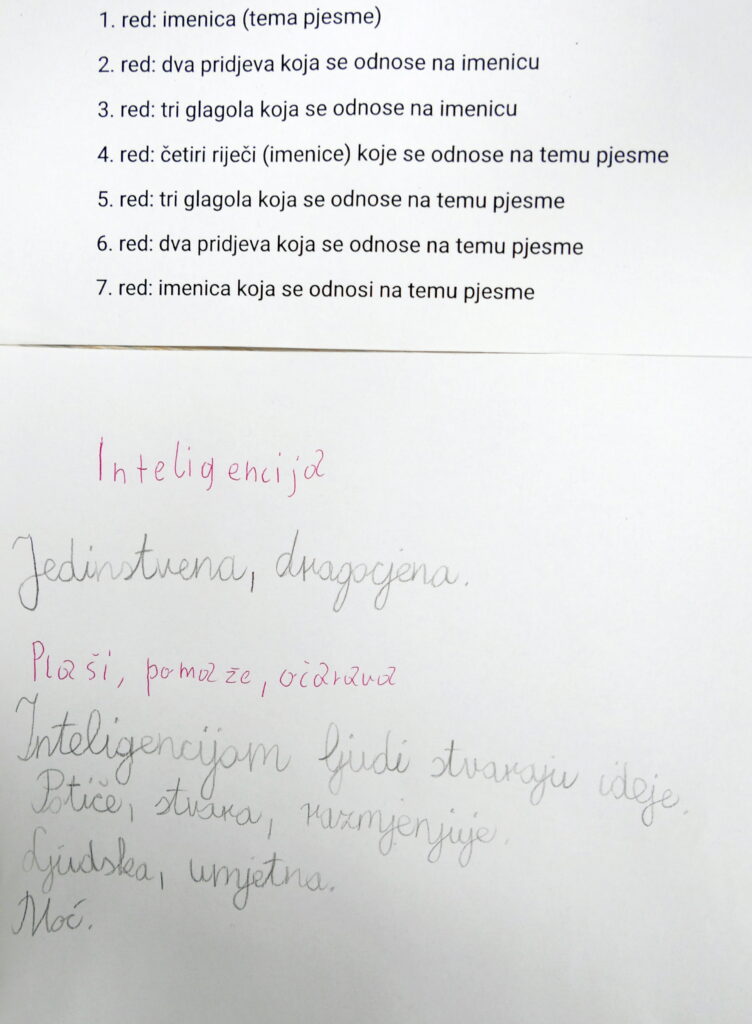 1. red: imenica (tema pjesme)
2. red: dva pridjeva koja se odnose na imenicu
3. red: tri glagola koja se odnose na imenicu
4. red: četiri riječi (imenice) koje se odnose na temu pjesme
5. red: tri glagola koja se odnose na temu pjesme
6. red: dva pridjeva koja se odnose na temu pjesme
7. red: imenica koja se odnosi na temu pjesme
Inteligencija
Jedinstvena, dragocjena.
Plaši, pomaže, očarava
Inteligencijom ljudi stvaraju ideje.
Potiče, stvara, razmjenjuje.
Ljudska, umjetna.
Moć.